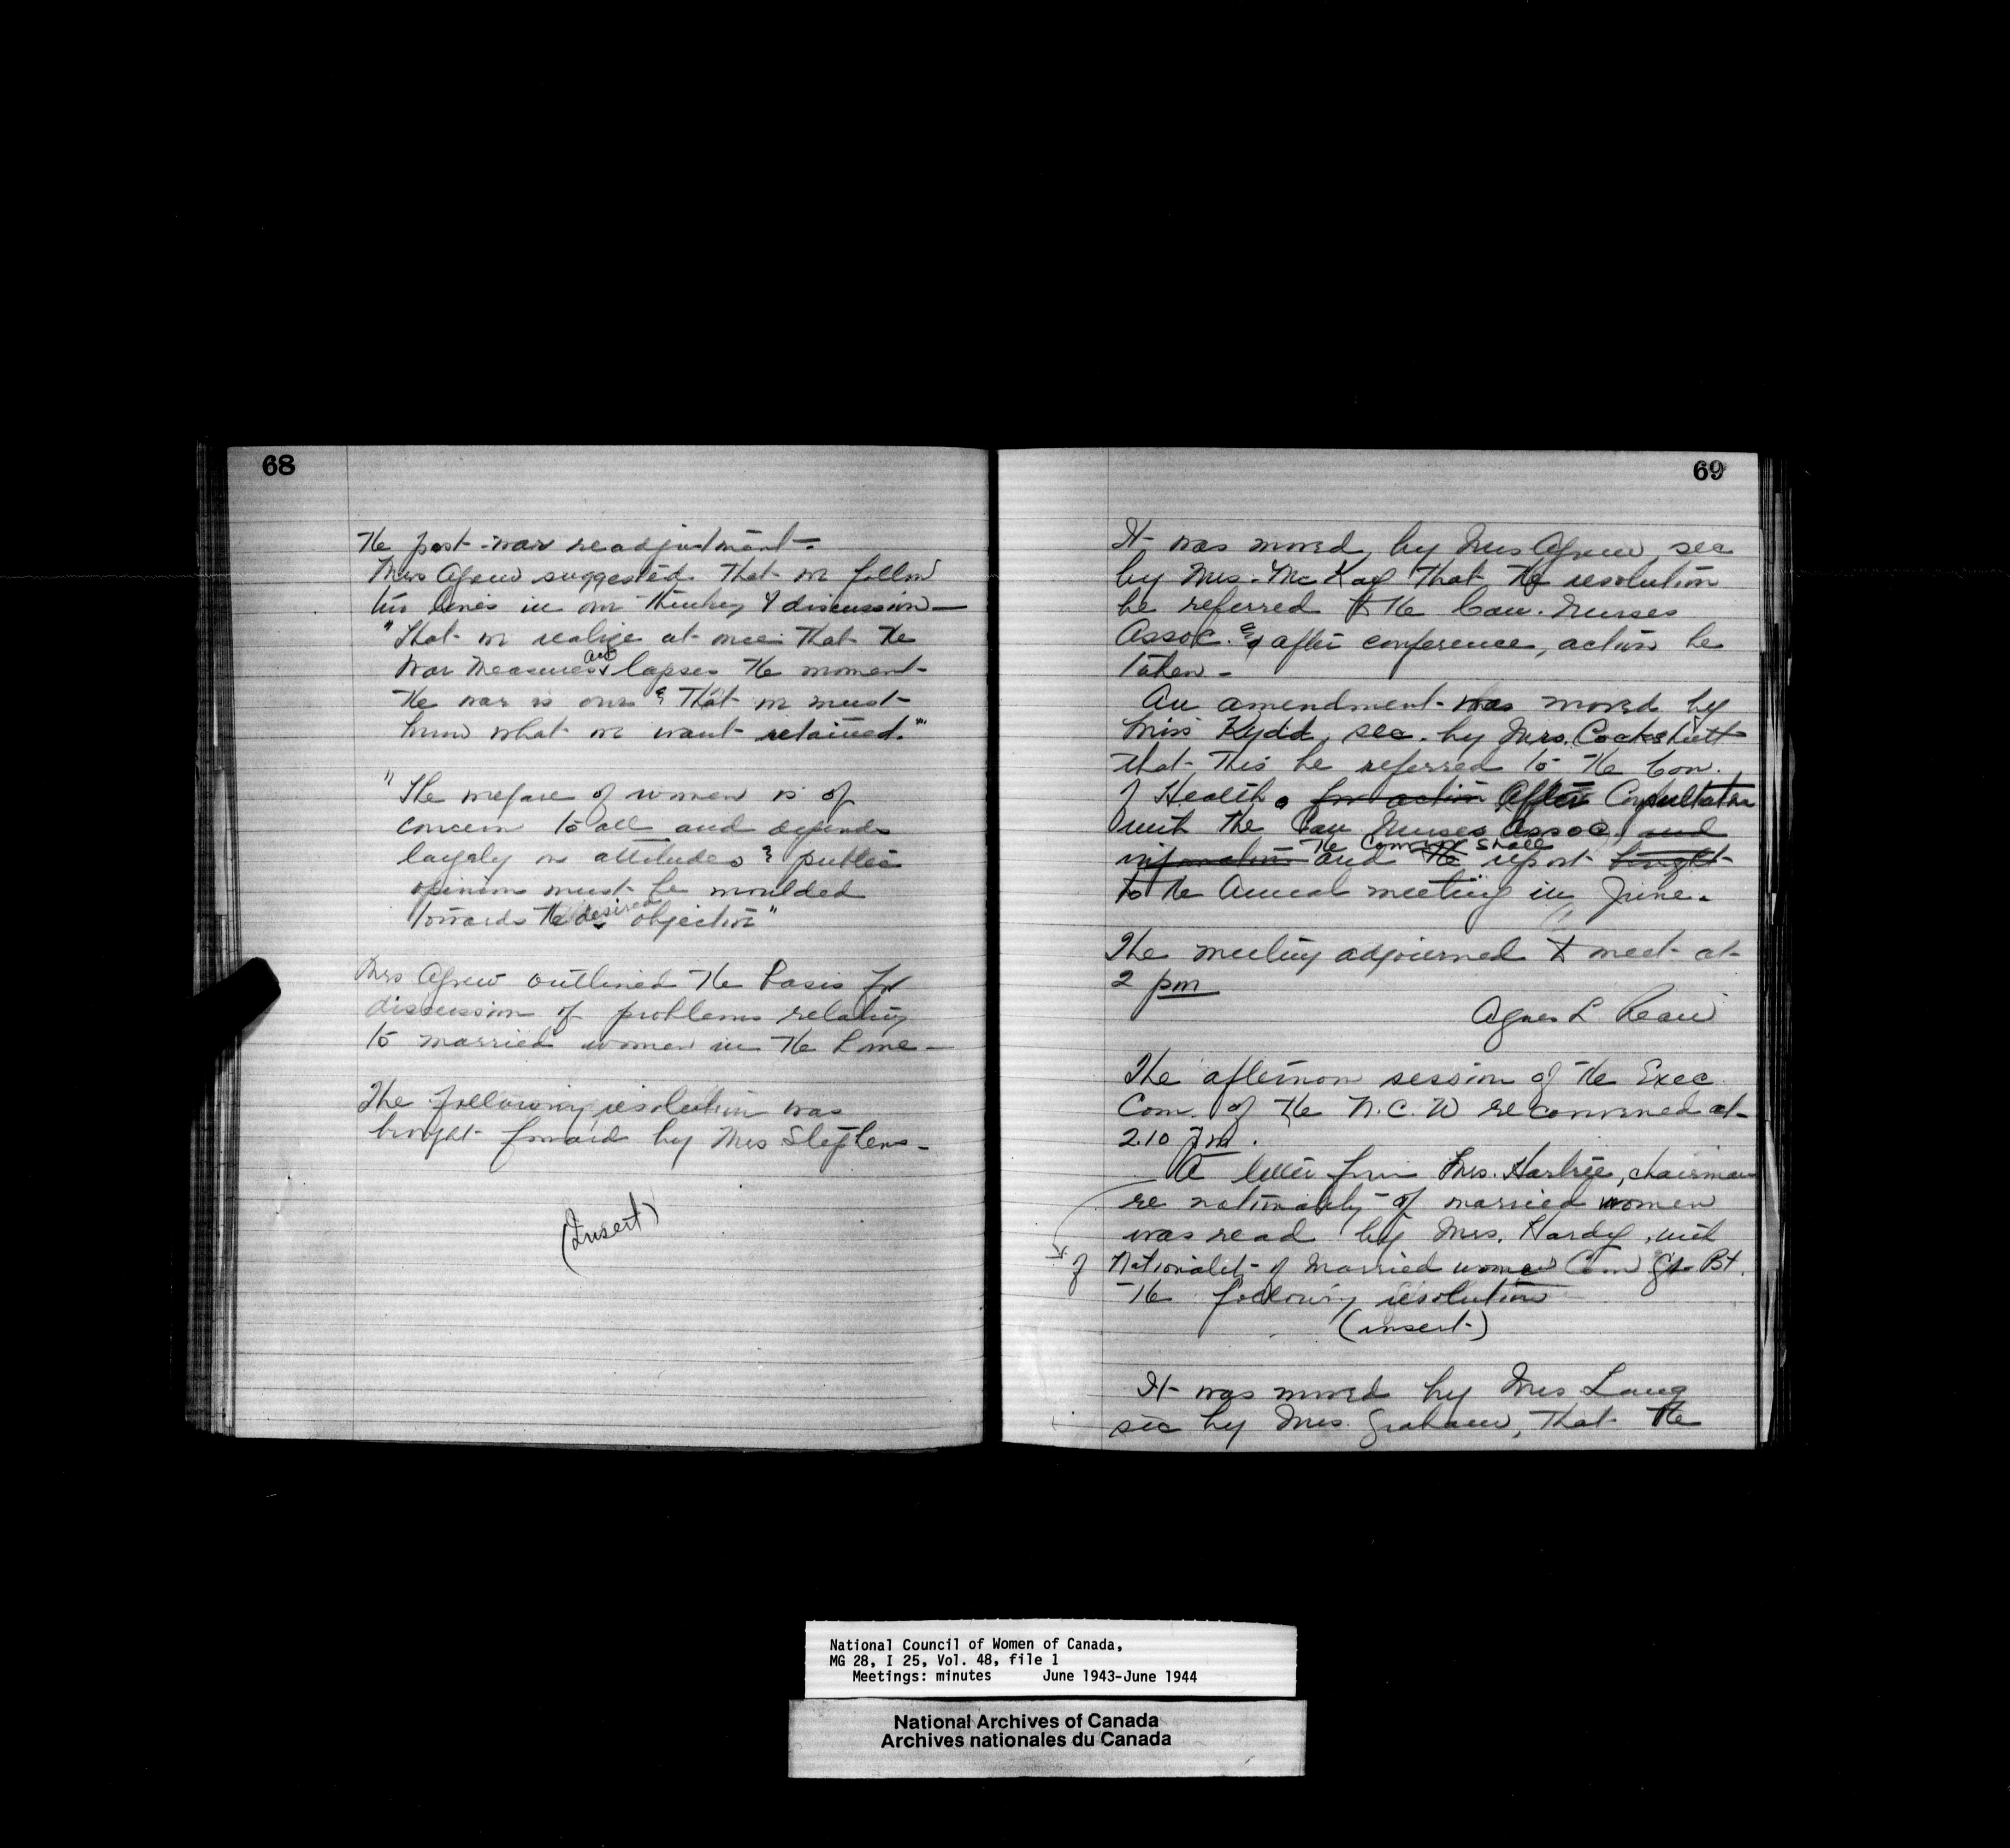 68
The post-war readjustment-
Mrs Agnew suggested that we follow
two lines in our thinking & discussion—
"That we realize at once that the
War Measures act lapses the moment
the war is over & that we must
know what we want retained."
"The welfare of women is of
concern to all and depends
largely on attitudes & public
opinion must be moulded
towards the desired objective"
Mrs Agnew outlined the basis for
discussion of problems relating
to married women in the home—
The following resolution was
brought forward by Mrs Stephens—
(Insert)
69
It was moved by Mrs Agnew, sec
by Mrs. McKay that the resolution
be referred to the Can. Nurses
Assoc. & after conference, action be
taken—
An amendment was moved by
Miss Kydd, sec. by Mrs. Cockshutt
that this be referred to the Con.
of Health. for action After Consultation
with the Can Nurses Assoc. and
information and the Convener shall the report brought
to the Annual meeting in June.
The meeting adjourned to meet at
2 pm
Agnes L
The afternoon session of the Exec
Com. of the N.C.W reconvened at
2.10 pm.
A letter from Mrs. , chairman
re nationality of married women
was read by Mrs. Hardy, with
of Nationality of Married women Com Gt Bt.
The following resolution
(insert)
It was moved by Mrs Lang
sec by Mrs. Graham, that the
National Council of Women of Canada,
MG 28, I 25, Vol. 48, file 1
Meetings: minutes June 1943-June 1944
National Archives of Canada
Archives nationales du Canada